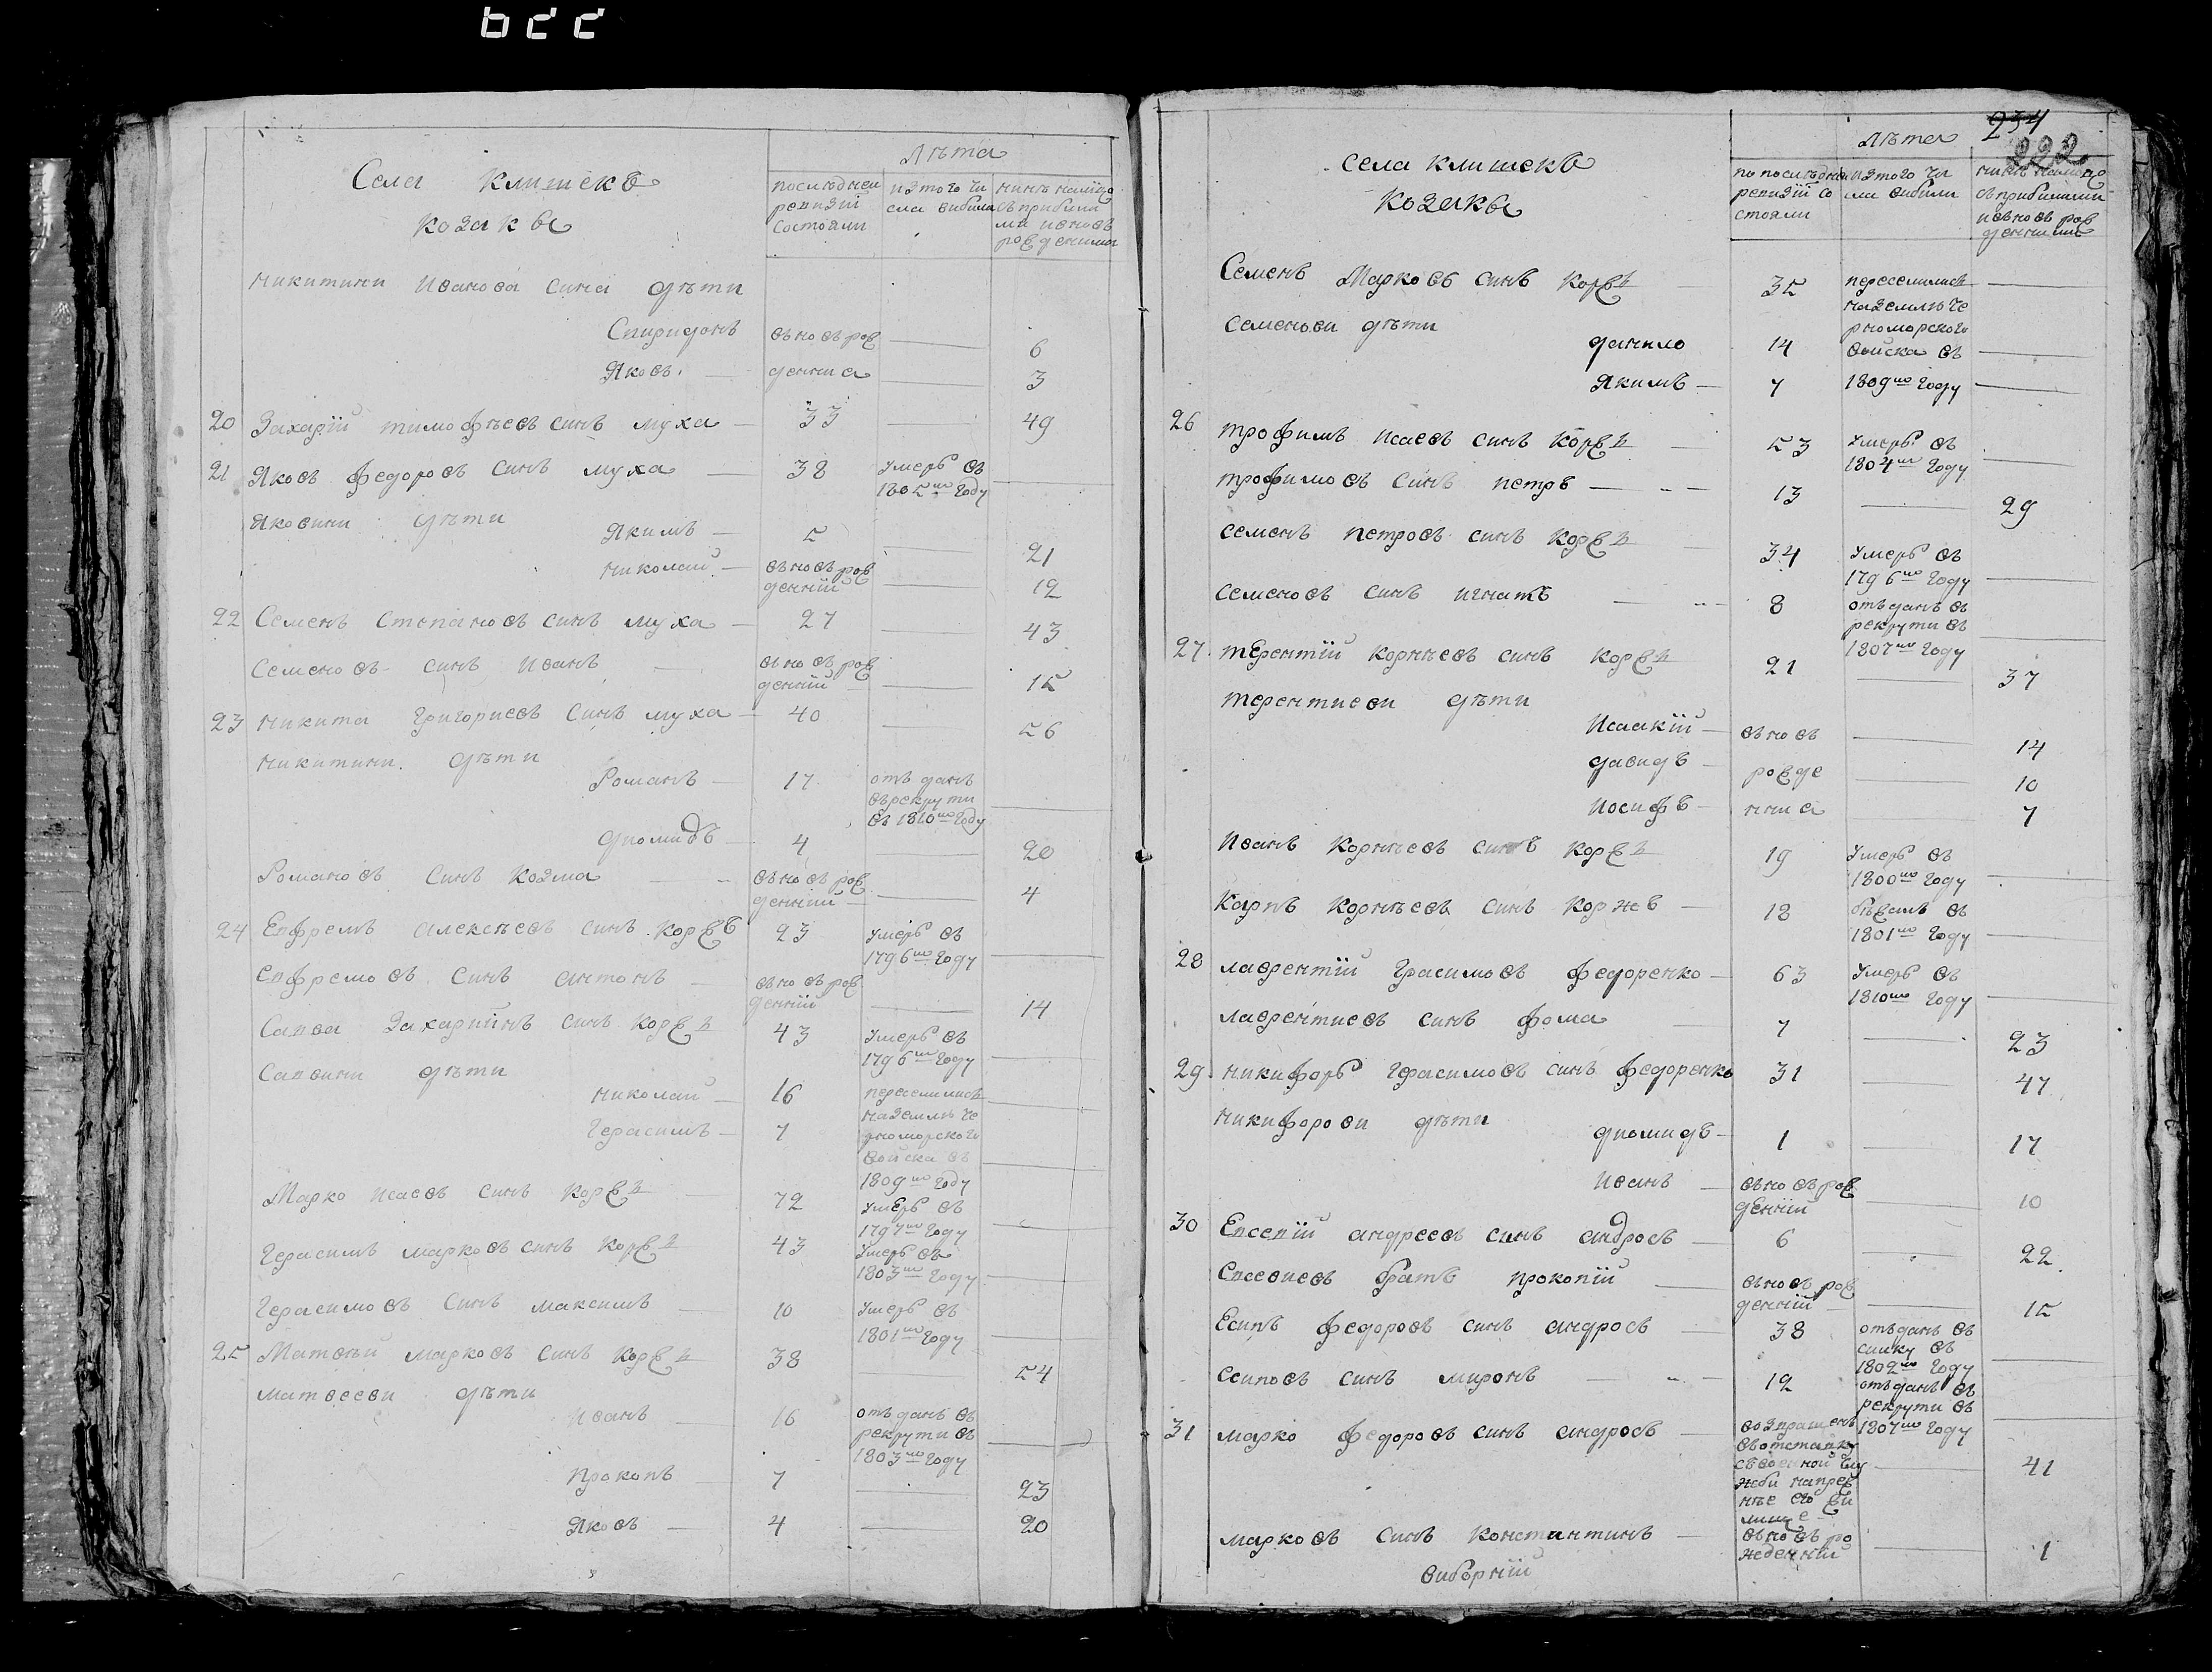 Села Клишекъ
козаки
Лѣта
последней ревизіи состояли
изтого числа выбыло
нынѣ налицо съприбылими ивновъ рожденими
Никитини Иванова сина дѣти
Спиридонъ вьновърож 6
Яковъ деннiа 3
20 Захарій тимофѣевъ синъ муха 33 49
21 Яковъ федоровъ синъ муха 38 Умеръ въ 1805мъ Году
Яковини дѣти
Якимъ 5 21
Николай вьновърожденній 12
22 Семенъ Степановъ синъ муха 27 43
Семеновъ синъ Иванъ вьновърожденній 15
23 Никита Григориевъ Синъ муха 40 56
Никитини дѣти
Романъ 17 отъданъ върекрути въ 1810мъ Году
диомидъ 4 20
Романовъ Синъ Козма вьновърожденний 4
24 Ефремъ алексѣевъ синъ Коржъ 23 Умеръ въ 1796мъ Году
Ефремовъ Синъ антонъ вьновърожденній 14
Савва Захариинъ синъ Коржъ 43 Умеръ въ 1796мъ Году
Саввини дѣти
Николай 16 переселились
Герасимъ 7 наземлю Черноморского войска въ 1809мъ Году
Марко исаевъ синъ Коржъ 72 Умеръ въ 1797мъ Году
Герасимъ марковъ синъ Коржъ 43 Умеръ въ 1803мъ Году
Герасимовъ Синъ максимъ 10 Умеръ въ 1801мъ Году
25 Матвѣй марковъ Синъ Коржъ 38 54
матвееви дѣти
Иванъ 16 отъданъ въ рекрути въ 1803мъ Году
Прокопъ 7 23
Яковъ 4 20
234
222
села клишекъ
козаки
лѣта
по последней ревизіи состояли
изтого числа выбыли
нынѣ налицо съприбылими ивновъ рожденними
Семенъ Марковъ синъ Коржъ 35 переселились
наземлю Черноморского
семенови дѣти
данило 14 войска въ
Якимъ 7 1809мъ Году
26 трофимъ исаевъ синъ Коржъ 53 Умеръ въ 1804мъ Году
трофимовъ Синъ петръ 13 29
семенъ петровъ синъ Коржъ 34 Умеръ въ 1796мъ Году
семеновъ синъ игнатъ 8 отъданъ въ рекрути въ 1807мъ Году
27 терентій корнѣевъ синъ Коржъ 21 37
терентиеви дѣти
Исаакій вьновъ 14
давидъ рожде 10
Иосифъ нниа 7
Иванъ Корнѣевъ синъ Коржъ 19 Умеръ въ 1800мъ Году
Карпъ Корнѣевъ синъ Коржъ 18 бѣжалъ въ 1801мъ Году
28 лаврентій Грасимовъ федоренко 63 Умеръ въ 1810мъ Году
лаврентиевъ синъ фома 7 23
29 никифоръ Герасимовъ синъ федоренко 31 47
Никифорови дѣти
диомидъ 1 17
Иванъ вьновърожденній 10
30 Евсевій андреевъ синъ андросъ 6 22
Евсевиевъ братъ прокопій вьновърожденній 15
Есипъ федоровъ синъ андросъ 38 отъданъ въ силку въ 1802мъ Году
есиповъ синъ миронъ 12 отъданъ въ рекрути въ 1807мъ Году
31 марко федоровъ синъ андросъ возвращенъ вотставку съвоенной службы напрежнѣе его жилище 41
марковъ синъ Константинъ вьновърожденній 1
виборній